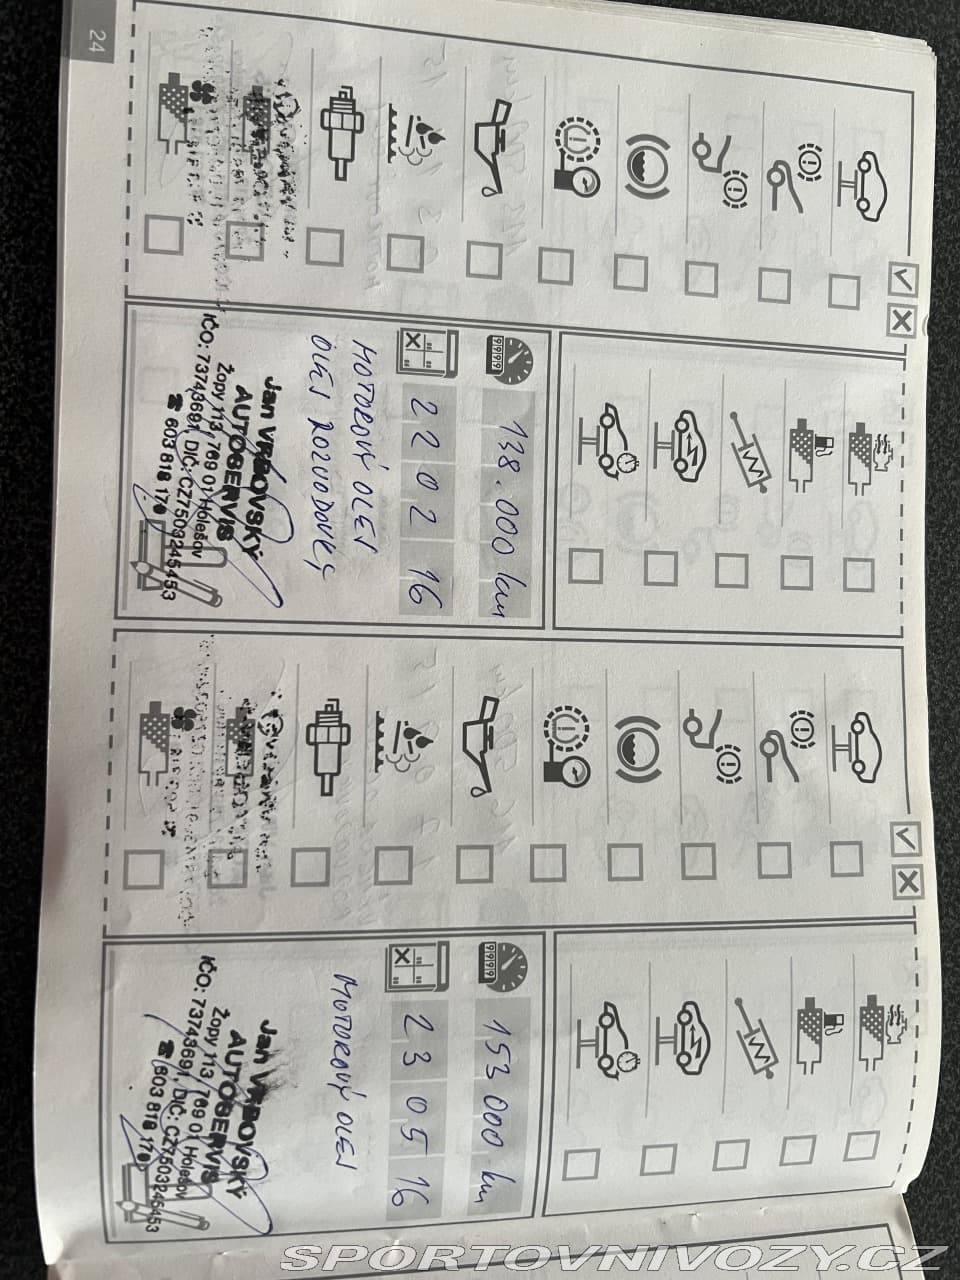 24
138.000 km
22 02 16
MOTOROVÝ OLEJ
OLEJ ROZVODOVKY
Jan VRBOVSKÝ
AUTOSERVIS
Žopy 113, 769 01 Holešov
IČO: 73743691, DIČ: CZ7503245453
☎ 603 818 170
153 000 km
23 05 16
MOTOROVÝ OLEJ
Jan VRBOVSKÝ
AUTOSERVIS
Žopy 113, 769 01 Holešov
IČO: 73743691, DIČ: CZ7503245453
☎ 603 818 170
SPORTOVNIVOZY.CZ